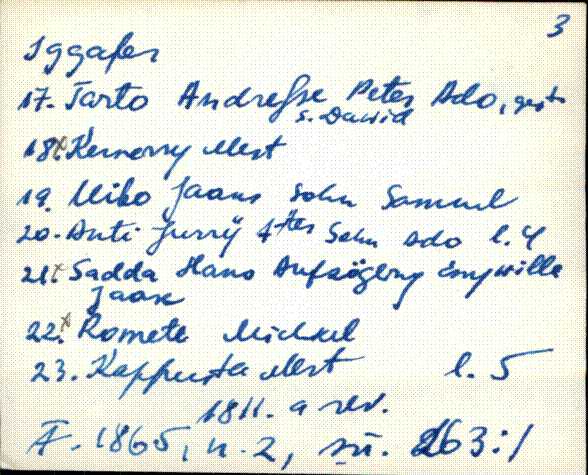 3
Iggafer
17. Tarto Andresse Peter Ado, gest.
s. Dawid
18. Kernorry Mert
19. Mibo Jaans Sohn Samuel
20. Anti Jurrÿ 4ter Sohn Ado l. 4
21. Sadda Hans Aufzögling
Jaak
22. Rometi Michkel
23. Kappusta Mert l. 5
1811. a rev.
F. 1865, n. 2, sü. 263:1